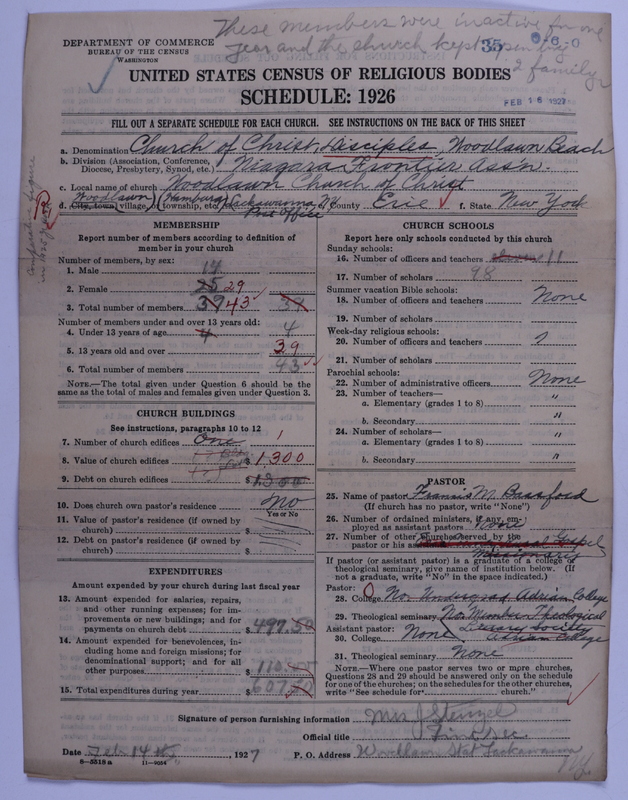 These members were inactive for one
year and the church kept open by
2 family
35
DEPARTMENT OF COMMERCE
BUREAU OF THE CENSUS
WASHINGTON
UNITED STATES CENSUS OF RELIGIOUS BODIES
SCHEDULE: 1926
FEB 16 1927
FILL OUT A SEPARATE SCHEDULE FOR EACH CHURCH. SEE INSTRUCTIONS ON THE BACK OF THIS SHEET
a. Denomination Church of Christ, Disciples, Woodlawn Beach
b. Division (Association, Conference, Diocese, Presbytery, Synod, etc.) Niagara Frontier Ass'n.
c. Local name of church Woodlawn Church of Christ
d. City, town, village, or township, etc. Woodlawn (Hamburg) Lackawanna, N.Y. Post office County Erie f. State New York
MEMBERSHIP
Report number of members according to definition of
member in your church
Number of members, by sex:
1. Male 14
2. Female 25 29
3. Total number of members 39 43
Number of members under and over 13 years old:
4. Under 13 years of age 4 4
5. 13 years old and over 39
6. Total number of members 43
NOTE.—The total given under Question 6 should be
the same as the total of males and females given under Question 3.
CHURCH BUILDINGS
See instructions, paragraphs 10 to 12
7. Number of church edifices One 1
8. Value of church edifices $1300
9. Debt on church edifices $1300
10. Does church own pastor's residence? No
Yes or No
11. Value of pastor's residence (if owned by
church) $
12. Debt on pastor's residence (if owned by
church) $
EXPENDITURES
Amount expended by your church during last fiscal year
13. Amount expended for salaries, repairs,
and other running expenses; for im-
provements or new buildings; and for
payments on church debt $497.50
14. Amount expended for benevolences, in-
cluding home and foreign missions; for
denominational support; and for all
other purposes $
15. Total expenditures during year $607.50
CHURCH SCHOOLS
Report here only schools conducted by this church
Sunday schools:
16. Number of officers and teachers eleven 11
17. Number of scholars 98
Summer vacation Bible schools:
18. Number of officers and teachers None
19. Number of scholars
Week-day religious schools:
20. Number of officers and teachers
21. Number of scholars
Parochial schools:
22. Number of administrative officers None
23. Number of teachers—
a. Elementary (grades 1 to 8) "
b. Secondary "
24. Number of scholars—
a. Elementary (grades 1 to 8) "
b. Secondary "
PASTOR
25. Name of pastor Francis M. Bassford
(If church has no pastor, write "None")
26. Number of ordained ministers, if any, em-
ployed as assistant pastors None
27. Number of other churches served by the
pastor or his Gospel
Missionary
If pastor (or assistant pastor) is a graduate of a college or
theological seminary, give name of institution below. (If
not a graduate, write "No" in the space indicated.)
Pastor:
28. College No. Undergrad Adrian College
29. Theological seminary No. Member Theological
Literary Society
Assistant pastor: Adrian College
30. College None
31. Theological seminary None
NOTE.—Where one pastor serves two or more churches,
Questions 28 and 29 should be answered only on the schedule
for one of the churches; on the schedules for the other churches,
write "See schedule for church."
Signature of person furnishing information Mrs. J. Stengel
Official title Fin. Sec.
Date Feb 14th, 1927 P. O. Address Woodlawn Stat. Lackawanna
N.Y.
8—5518a 11—9054